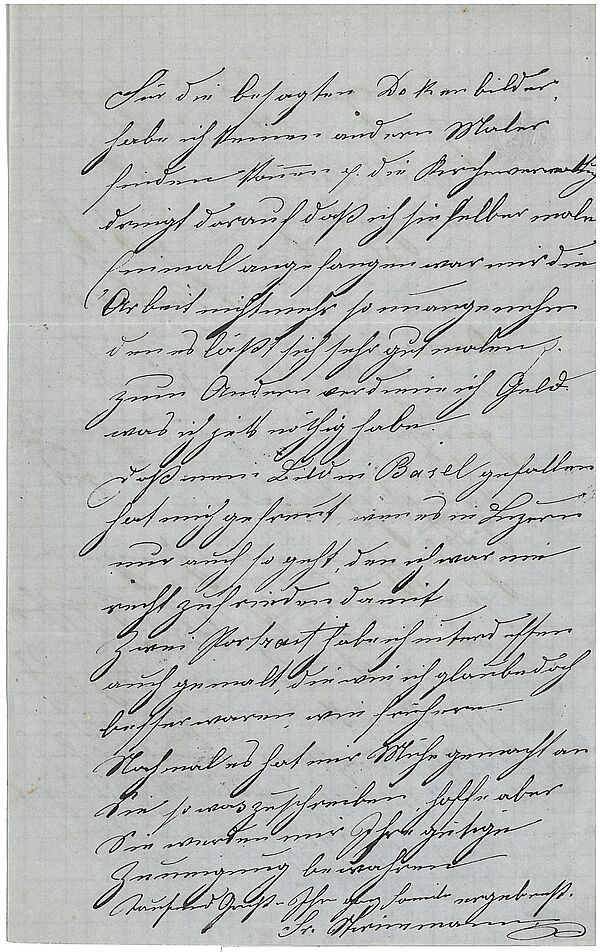 Für die besagten Dekenbilder,
habe ich keinen andern Maler
finden können u. die Kirchenverwaltg
dringt darauf daß ich sie selber male
Einmal angefangen war mir die
Arbeit nicht mehr so unangenehm
den es läßt sich sehr gut malen, u.
zum Andern verdiene ich Geld
was ich jetzt nöthig habe
Daß mein Bild in Basel gefallen
hat mich gefreut, wen es in Luzern
nur auch so geht, den ich war nie
recht zufrieden damit
Zwei Portrait habe ich unterdessen
auch gemalt, die wie ich glaube doch
besser waren, wie frühere
Nochmal es hat mir Mühe gemacht an
Sie so was zu schreiben, hoffe aber
Sie werden mir Ihre gütige
Zuneigung bewahren
Tausend Grüße Ihr ganz ergebenst.
Fr.